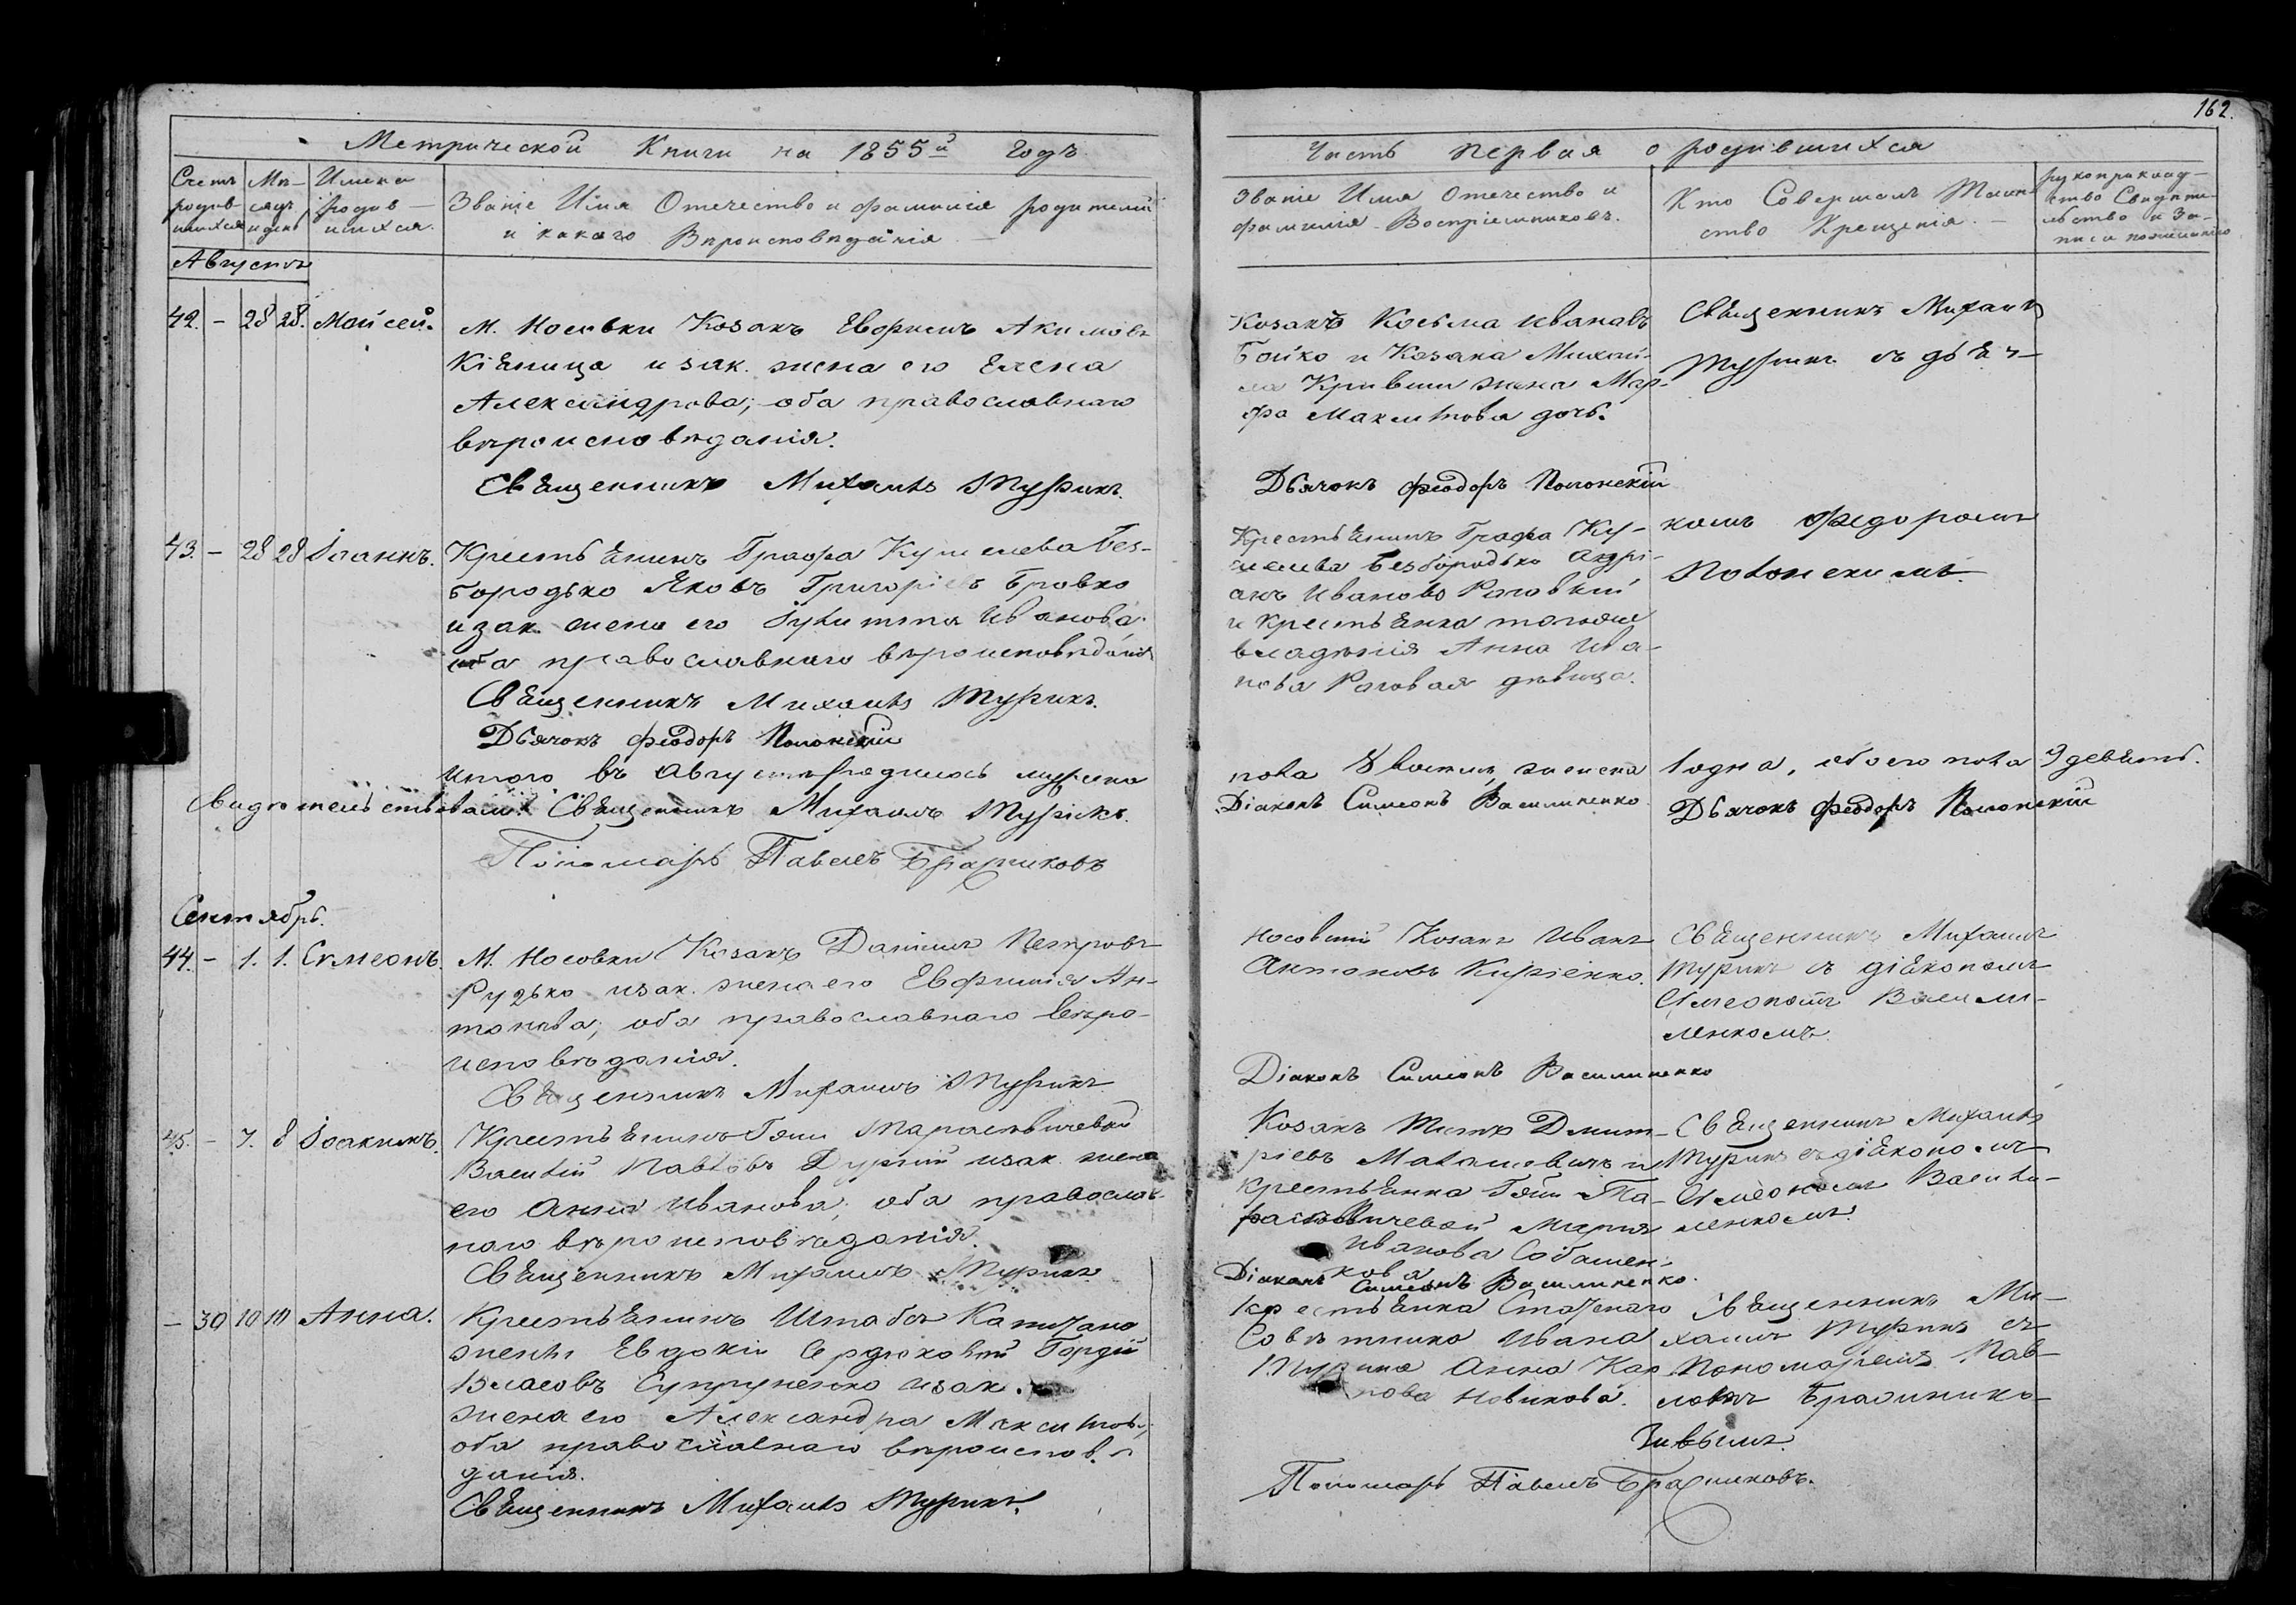 162.
Метрической Книги на 1855й Годъ
Часть первая о родившихся
Счетъ родив- шихся
Мѣ- сяцъ и день
Имена родив- шихся.
Званіе Имя Отечество и фамилія родителей
и какого Вѣроисповѣданія
Званіе Имя Отечество и
фамилія Воспріемниковъ.
Кто Совершалъ Таин-
ство Крещенія.
рукоприклад-
ство Свидѣте-
льство и За-
писи
Августъ
42. - 28 28. Мойсей.
М. Носовки Козакъ Акимовъ
Кіяница и зак. жена его Елена
Александрова; оба православнаго
вѣроисповѣданія.
Священникъ Михаилъ Турикъ.
Козакъ Косьма Ивановъ
Бойко и Козака Михай-
ла жена Мар-
фа Максимова дочь.
Священникъ Михаилъ
Турикъ съ дьяч-
Дьячокъ Феодоръ Полонскій
43. - 28 28 Іоаннъ.
Крестьянинъ Графа Кушелева Без-
бородько Яковъ Григоріевъ Бровко
и зак. жена его Іулитта Иванова
оба православнаго вѣроисповѣданія
Священникъ Михаилъ Турикъ.
Дьячокъ Феодоръ Полонскій
Крестьянинъ Графа Ку-
шелева Безбородько Андрі-
анъ Ивановъ Роговый
и крестьянка тогоже
владѣнія Анна Ива-
нова Роговая дѣвица.
комъ Федоромъ
Полонскимъ.
Итого въ Августѣ родилось мужеска
пола 8 восемь, женска 1 одна, обоего пола 9 девять.
Свидѣтельствовали: Священникъ Михаилъ Турикъ.
Діаконъ Симеонъ Василиненко
Дьячокъ Феодоръ Полонскій
Пономарь Павелъ Бражниковъ
Сентябрь.
44. - 1. 1. Симеонъ.
М. Носовки Козакъ Даніилъ Петровъ
Рудько и зак. жена его Евфимія Ан-
тонова; оба православнаго вѣро-
исповѣданія.
Священникъ Михаилъ Турикъ
Носовскій Козакъ Иванъ
Антоновъ Киріенко.
Священникъ Михаилъ
Турикъ съ діякономъ
Симеономъ Васили-
ненкомъ.
Діаконъ Симеонъ Василиненко
45. - 7. 8 Іоакимъ.
Крестьянинъ Гжи Тарасевичевой
Василій Павловъ и зак. жена
его Анна Иванова; оба православ-
наго вѣроисповѣданія.
Священникъ Михаилъ Турикъ
Козакъ Дмит-
ріевъ и
крестьянка Гжи Та-
расевичевой Марія
Иванова Собашен-
кова
Священникъ Михаилъ
Турикъ съ діякономъ
Симеономъ Васили-
ненкомъ.
Діаконъ Симеонъ Василиненко.
- 30 10 10 Анна.
Крестьянинъ Штабсъ Капитана
жены Евдокіи Сердюковой Гордій
Власовъ Супруненко и зак.
жена его Александра Максимова,
оба православнаго вѣроисповѣ-
данія.
Священникъ Михаилъ Турикъ.
крестьянка Статскаго
Совѣтника Ивана
Анна Кар-
пова Новикова.
Священникъ Ми-
хаилъ Турикъ съ
Пономаремъ Пав-
ломъ Бражнико-
вымъ.
Пономарь Павелъ Бражниковъ.